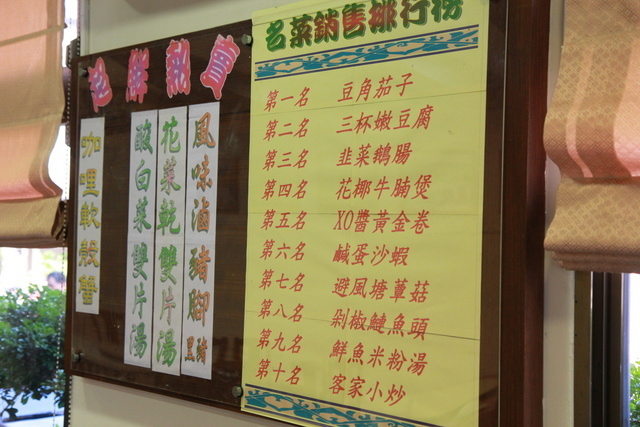 名菜銷售排行榜
第一名 豆角茄子
第二名 三杯嫩豆腐
第三名 韭菜鵝腸
第四名 花椰牛腩煲
第五名 XO醬黃金卷
第六名 鹹蛋沙蝦
第七名 避風塘蕈菇
第八名 剁椒鰱魚頭
第九名 鮮魚米粉湯
第十名 客家小炒
鮮熱賣
風味滷豬腳
花菜乾雙片湯
酸白菜雙片湯
咖哩軟殼蟹